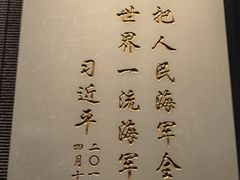 把人民海军全
世界一流海军
习近平
二〇一
四月十